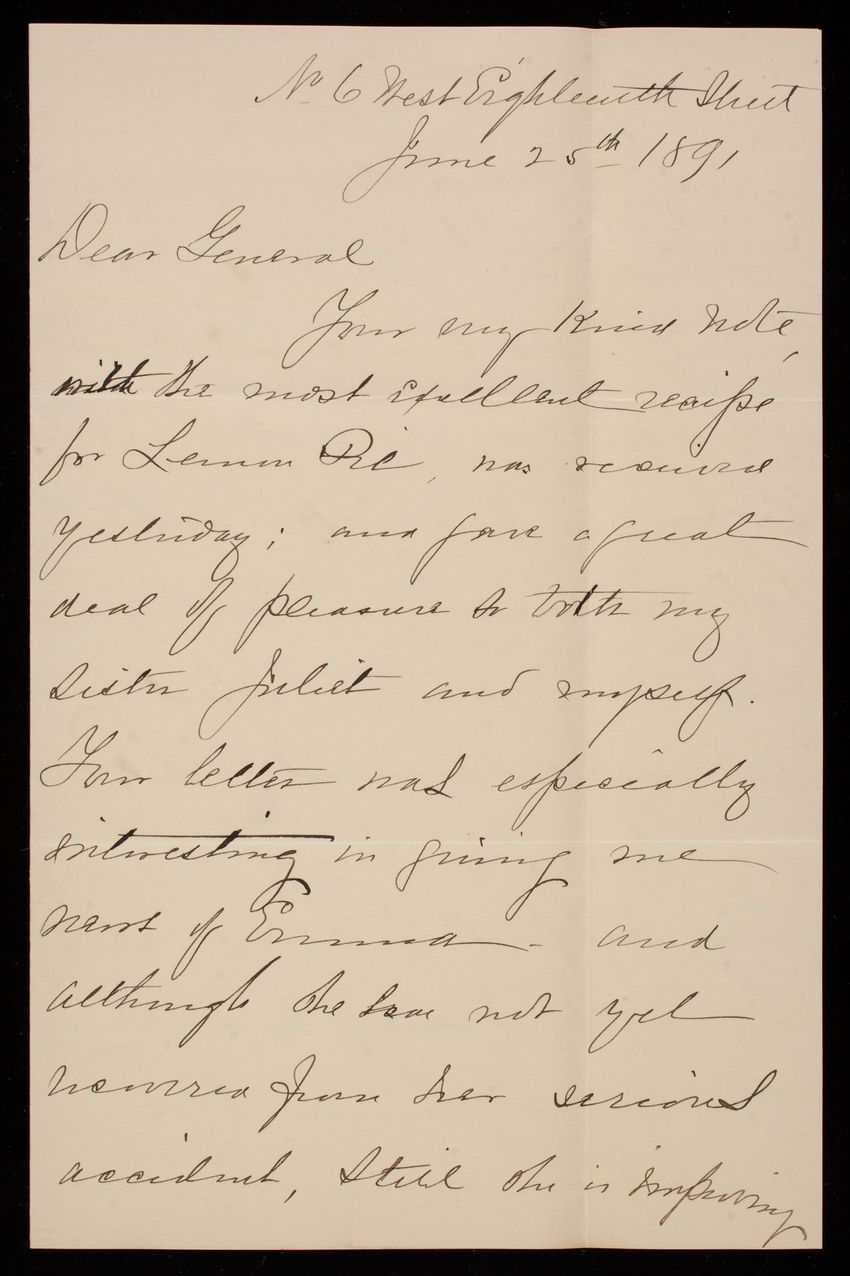 No 6 West Eighteenth Street
June 25th 1891
Dear General
Your very kind note,
with the most excellent recipe
for Lemon Pie, was received
yesterday; and gave a great
deal of pleasure to both my
sister Juliet and myself.
Your letter was especially
interesting in giving me
news of Emma - and
although she has not yet
recovered from her serious
accident, still she is improving